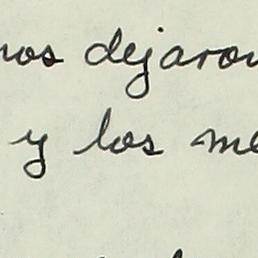 nos dejaron
y los me